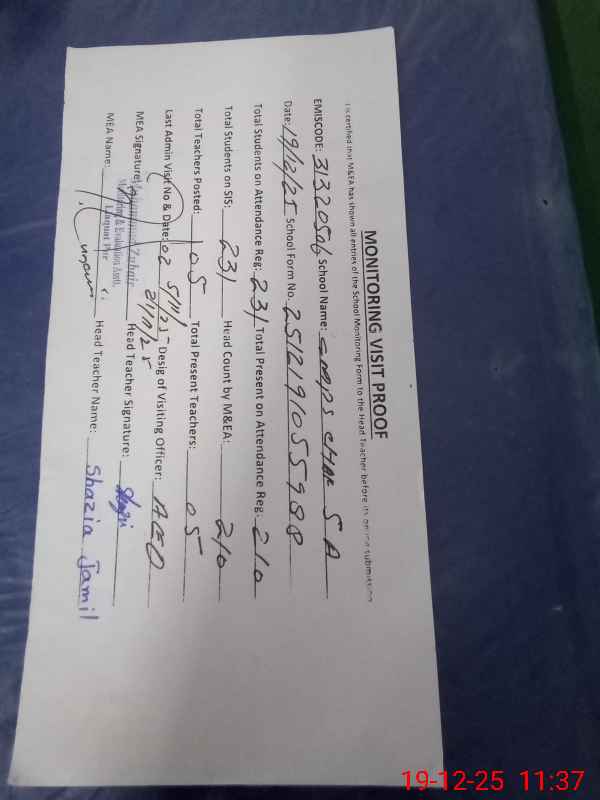 MONITORING VISIT PROOF
It is certified that M&EA has shown all entries of the School Monitoring Form to the Head Teacher before its online submission
EMISCODE: 31320506 School Name: GMPS CHAK 5 A
Date: 19/12/25 School Form No. 2512191055988
Total Students on Attendance Reg: 231 Total Present on Attendance Reg: 210
Total Students on SIS: 231 Head Count by M&EA: 210
Total Teachers Posted: 05 Total Present Teachers: 05
Last Admin Visit No & Date: 02 5/11/25 Desig of Visiting Officer: AEO
21/10/25
MEA Signature: Head Teacher Signature:
Muhammad Zubair
Monitoring & Evaluation Asstt.
Liaquat Pur
MEA Name: Head Teacher Name: Shazia Jamil
19-12-25 11:37